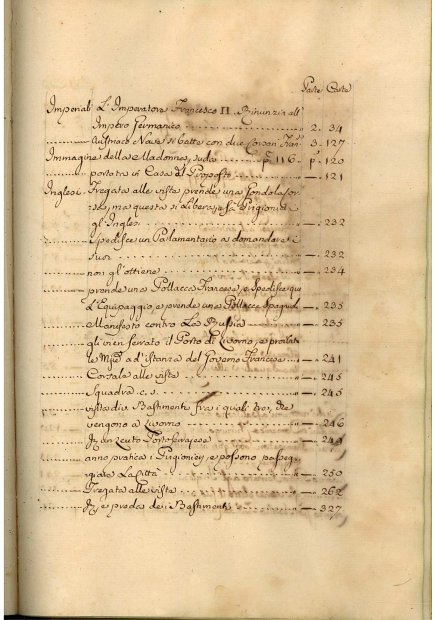 Parte Carte
Imperiali L'Imperatore Francesco II. Rinunzia all'
Impero Germanico 2. 34
Nave si batte con due Corsari Fran: 3. 127
Immagine della Madonna, suda p. 116. p. 120
portata in Casa del Proposto — 121
Inglesi. Fregata alla vista prende una Gondola Cor-
sa, ma questa si libera, e fà Prigionieri
gl'Inglesi — 232
Spedisce un Parlamentario a domandare i
Suoi — 232
non gl'ottiene — 234
prende una Pollacca Francese, e Spedisce qui
l'Equipaggio, e prende una Pollacca Spagnuola — 235
Manifesto contro La Russia — 235
gli vien serrato il Porto di Livorno, e proibite
le ad'istanza del Governo Francese — 241
Corsala alla vista — 245
Squadra c. s. — 245
vista di Bastimenti fra i quali
vengono a Livorno — 246
un Leuto Portoferrajese — 249
anno pratica i Prigionieri, e possono passeg-
giare La Città — 250
Fregata alla vista — 262
e preda dei Bastimenti — 327